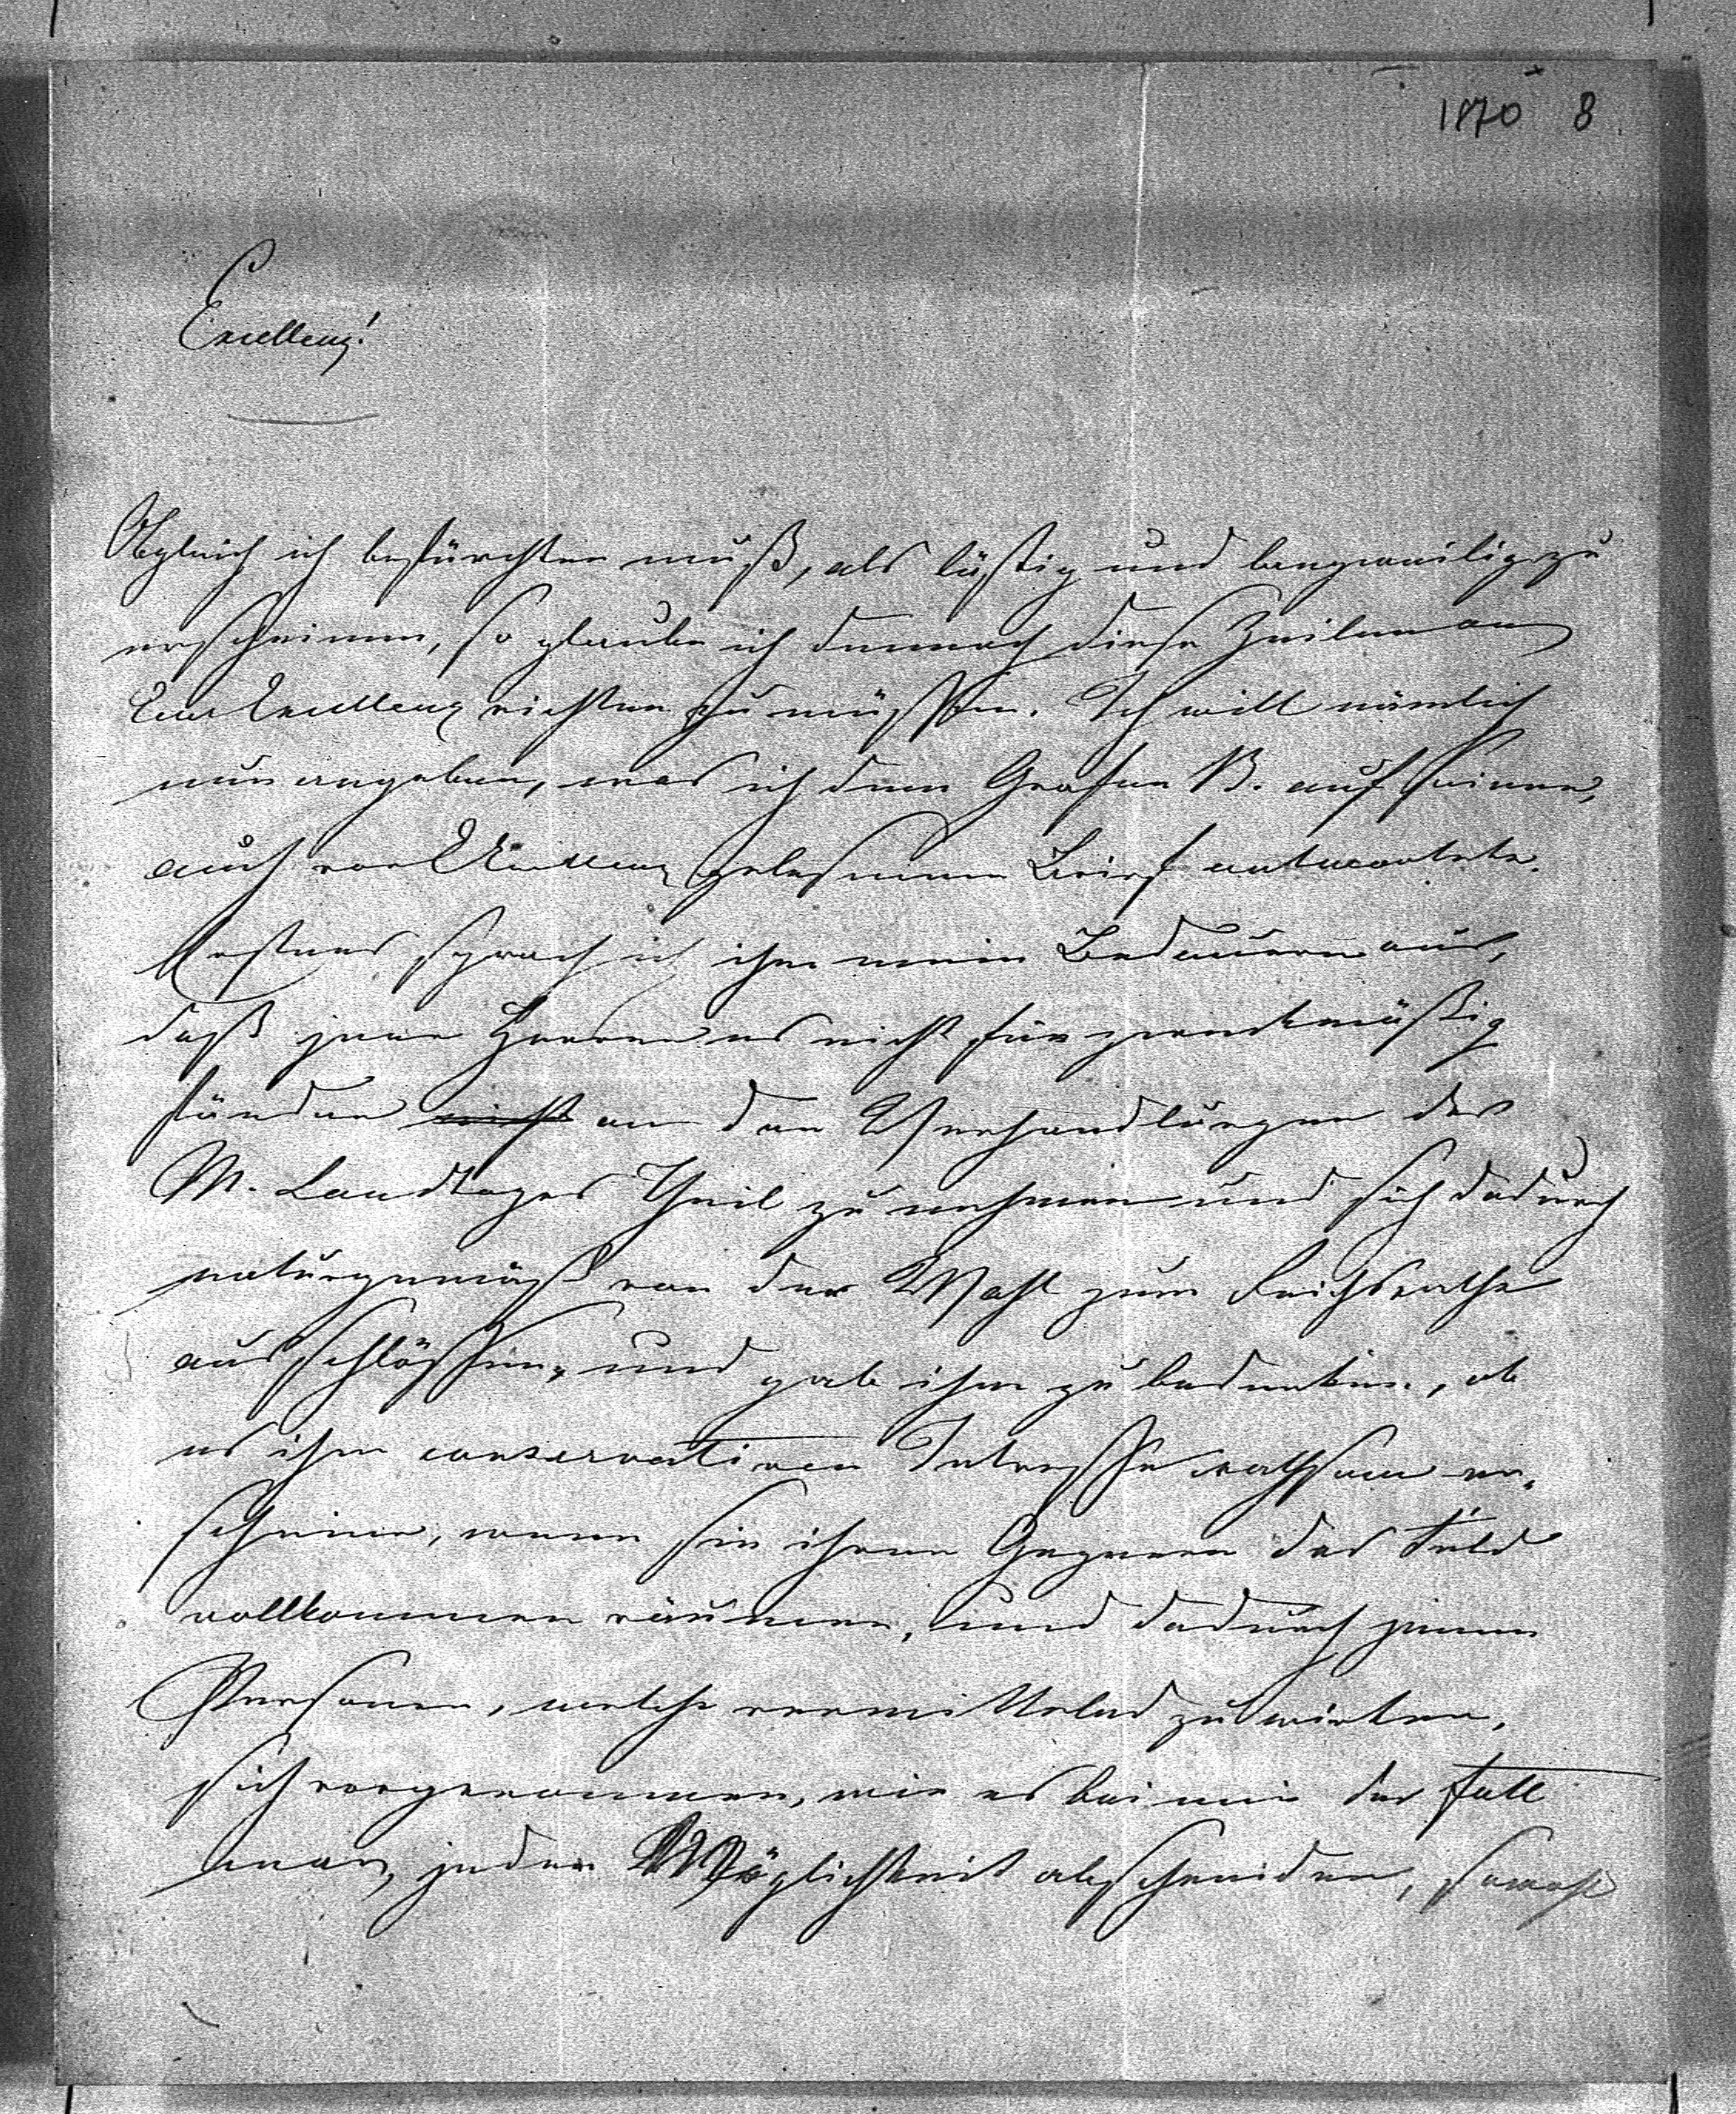 1870 8
Excellenz!
Obgleich ich befürchten muß, als lästig und langweilig zu
erscheinen, so glaube ich dennoch diese Zeilen an
Eure Excellenz richten zu müssen. Ich will nämlich
nun angeben, was ich dem Grafen B. auf seinen,
auch von Excellenz gelesenen Brief antwortete.
Erstens sprach ich ihm mein Bedauern aus,
daß jene Herren es nicht für zweckmäßig
fänden nicht an den Verhandlungen des
M. Landtages Theil zu nehmen und sich dadurch
naturgemäß von der Wahl zum Reichsrathe
ausschlössen, und gab ihm zu bedenken, ob
es ihm conservativen Interesse rathsam er-
scheine, wenn sie ihren Gegnern das Feld
vollkommen räumen, und dadurch jenen
Personen, welche vermittelnd zu wirken,
sich vorgenommen, wie es bei mir der Fall
war, jeder Möglichkeit abschneiden, sowohl